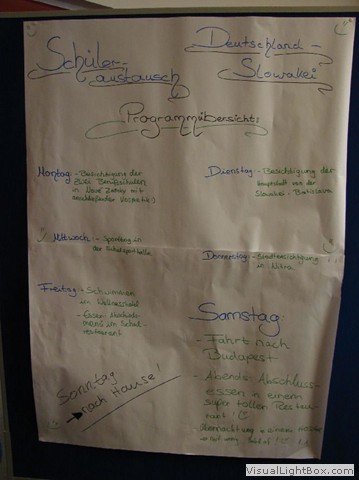 Schüler-
austausch
Deutschland -
Slowakei
Programmübersicht:
Montag: - Besichtigung der
zwei Berufsschulen
in Nové Zámky mit
Dienstag: - Besichtigung der
Hauptstadt von der
Slowakei: Bratislava
Mittwoch - Sporttag in
der Schulsporthalle
Donnerstag: - Stadtbesichtigung
in Nitra
Freitag: - Schwimmen
im
- Essen
im Schul-
restaurant
Samstag:
- Fahrt nach
Budapest
- Abends: Abschluss-
essen in einem
super tollen Restau-
rant!
- Übernachtung in einem
Sonntag
→ nach Hause!
VisualLightBox.com